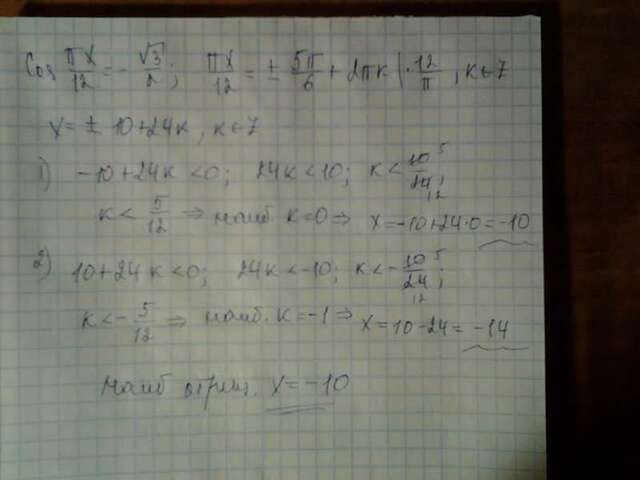 Cos πx/12 = -√3/2; πx/12 = ± 5π/6 + 2πk | · 12/π, k∈Z
x = ± 10+24k, k∈Z
1) -10+24k<0; 24k<10; k< 10/24 5/12;
k < 5/12 ⇒ наиб k=0 ⇒ x=-10+24·0=-10
2) 10+24k<0; 24k<-10; k<- 10/24 5/12;
k<- 5/12 ⇒ наиб. k=-1 ⇒ x=10-24=-14
Наиб отриц. x=-10